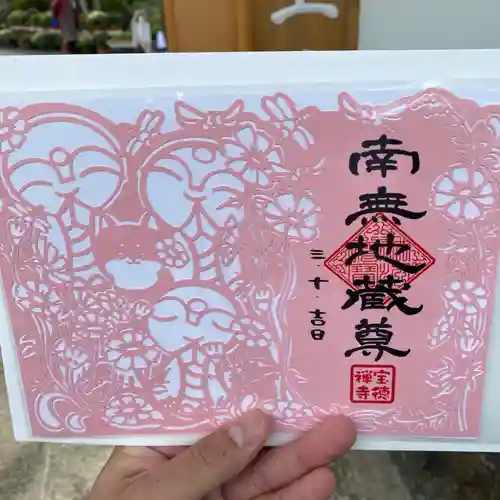 南無地蔵尊
三.十.吉日
宝徳禅寺